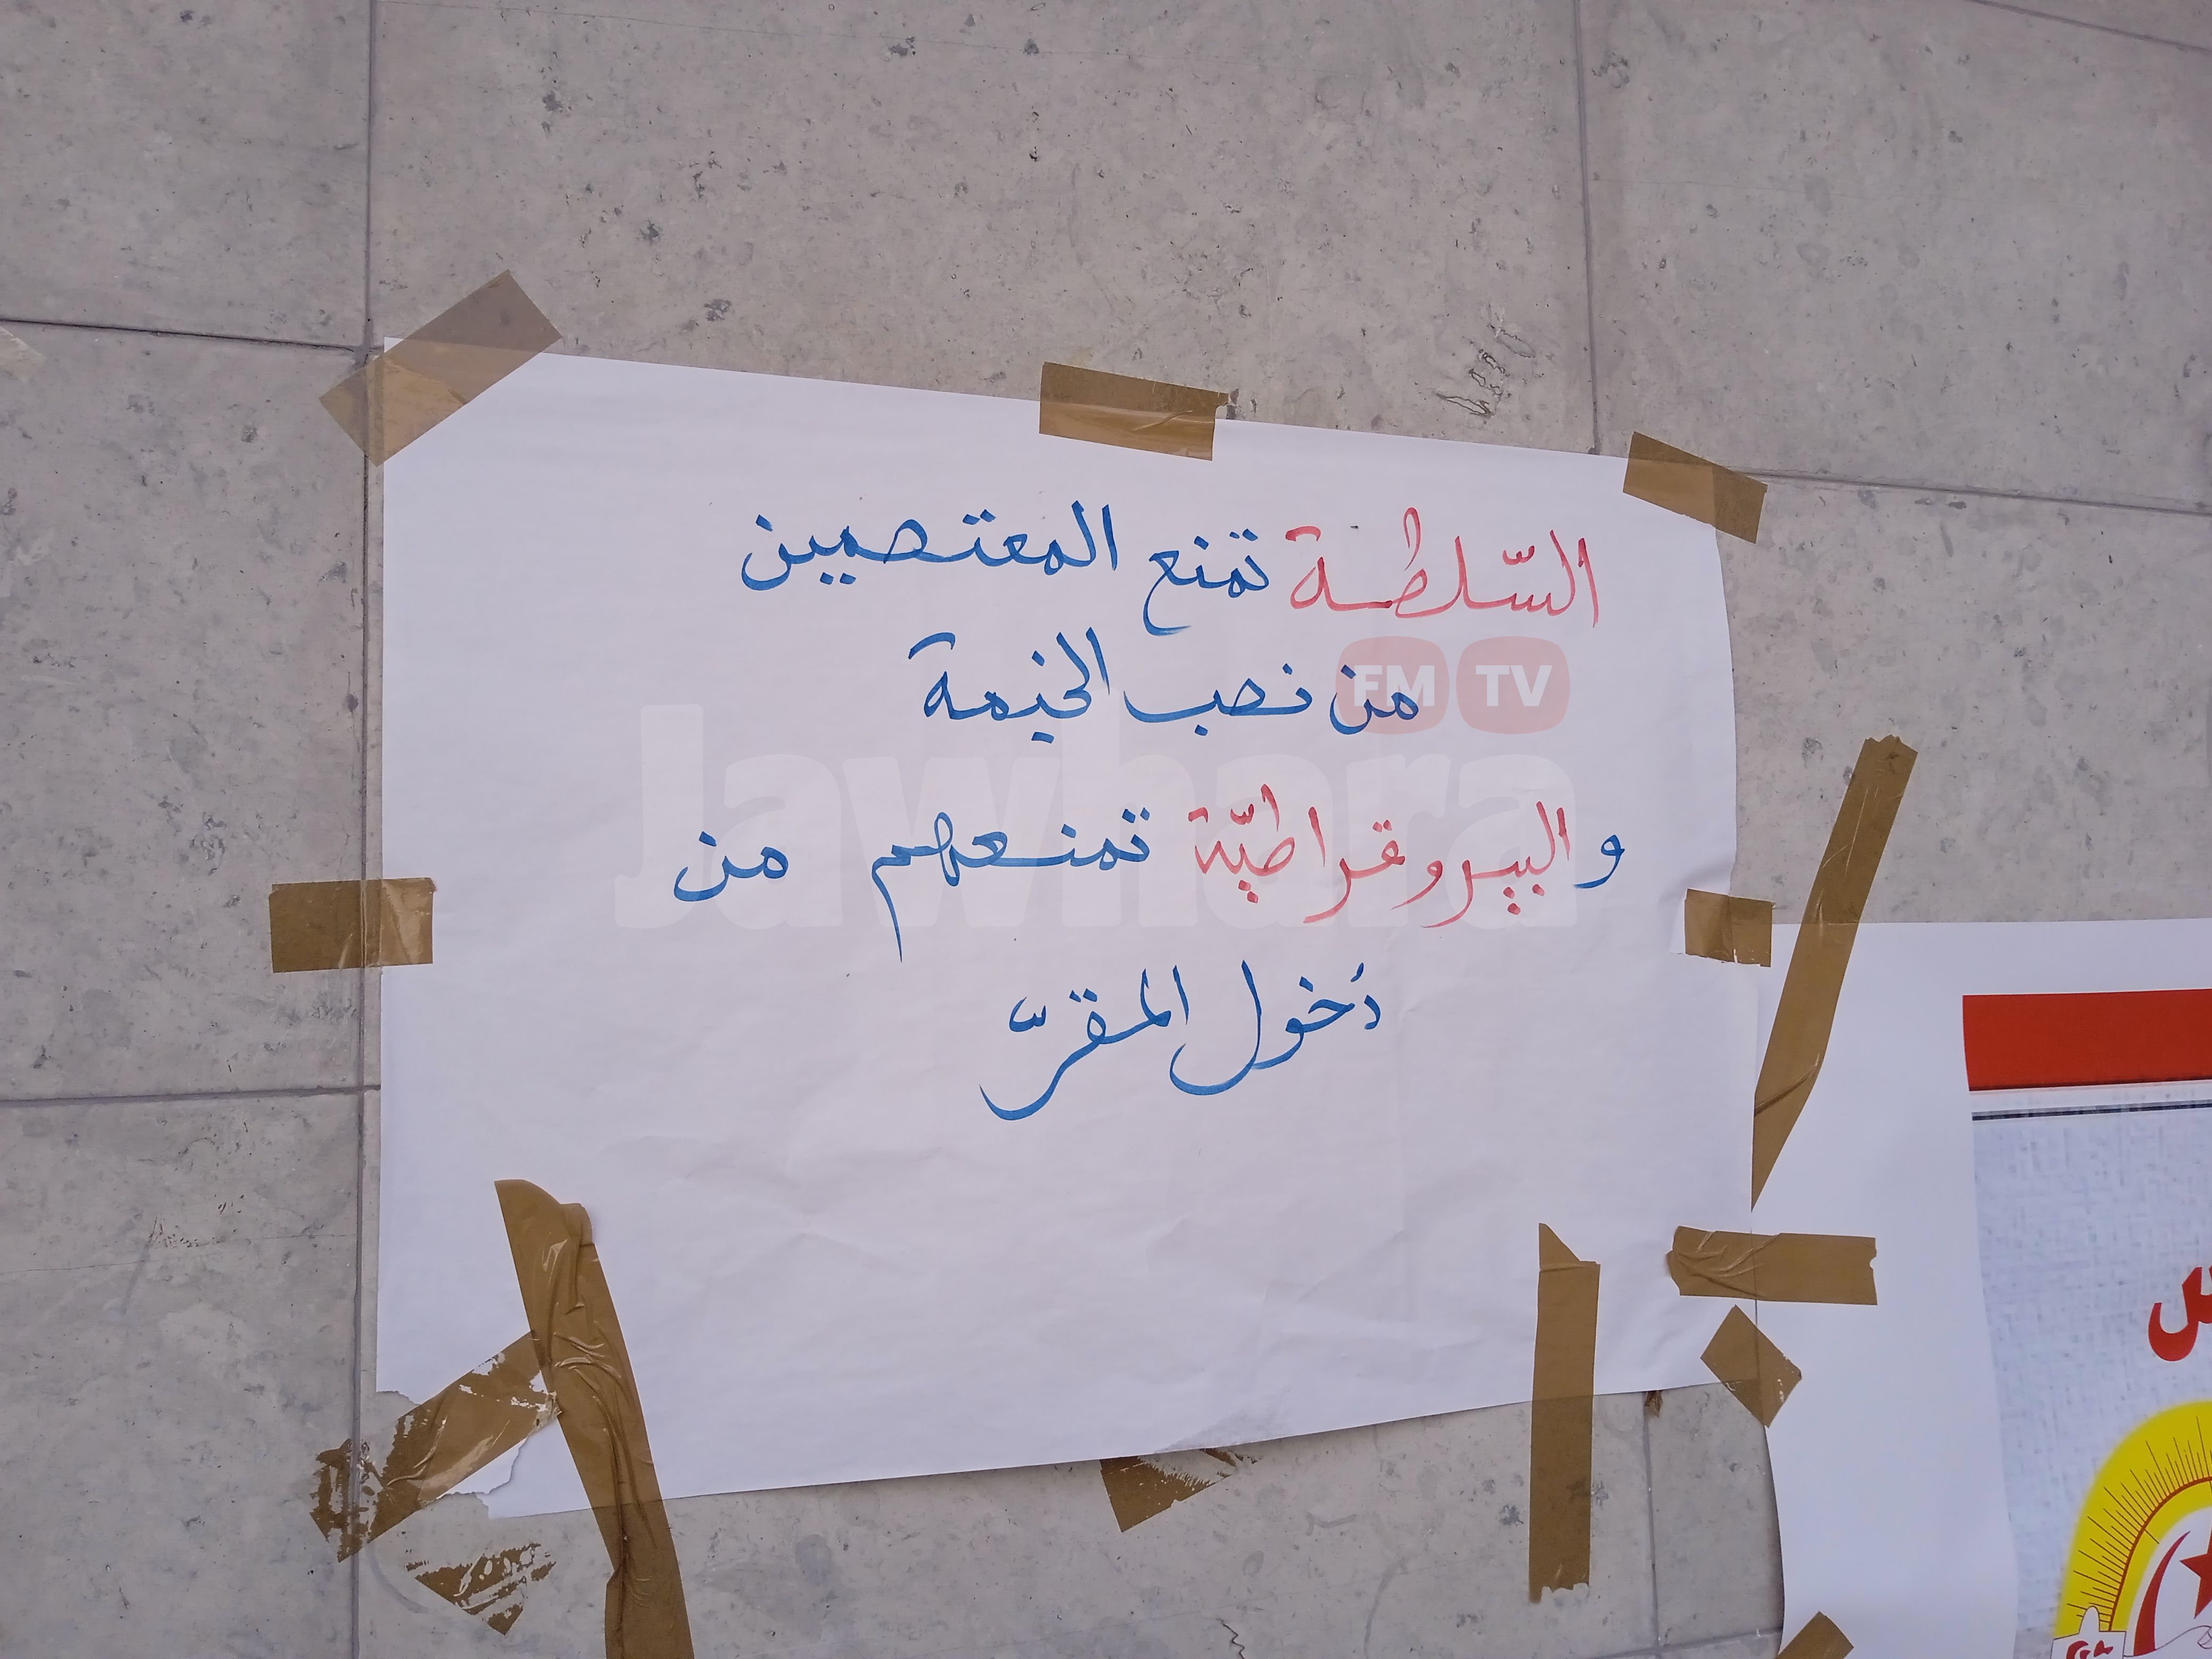 السّلطة تمنع المعتصمين
من نصب الخيمة
و البيروقراطيّة تمنعهم من
دُخول المقرّ
FM TV
Jawhara